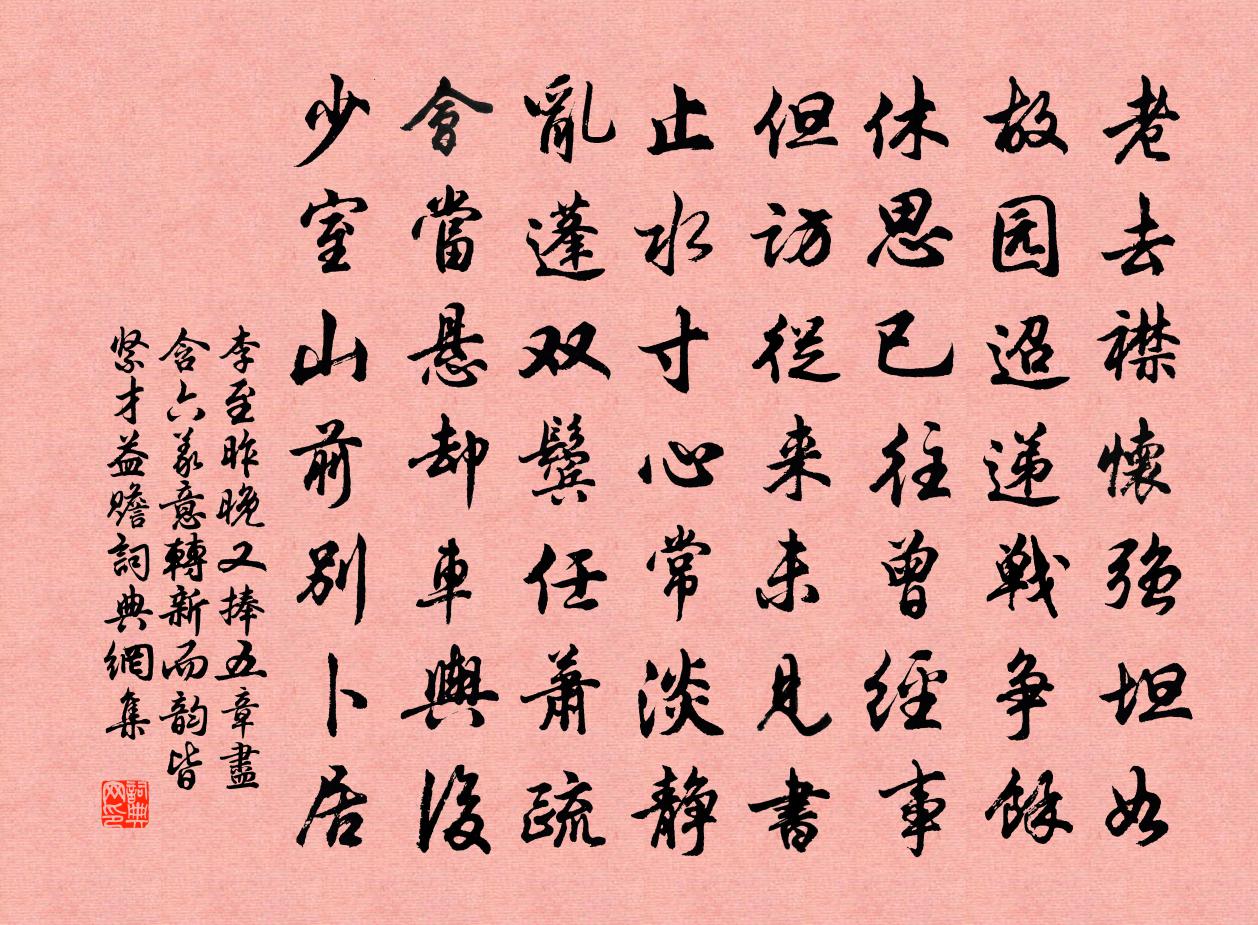 老去襟懷强坦如
故园迢递戦争餘
休思已往曾經事
但访從来未見書
止水寸心常淡静
亂蓬双鬓任蕭疏
會當悬却車輿後
少室山前别卜居
李至昨晚又捧五章盡
含六义意轉新而韵皆
紧才益赡詞典網集
詞典网印